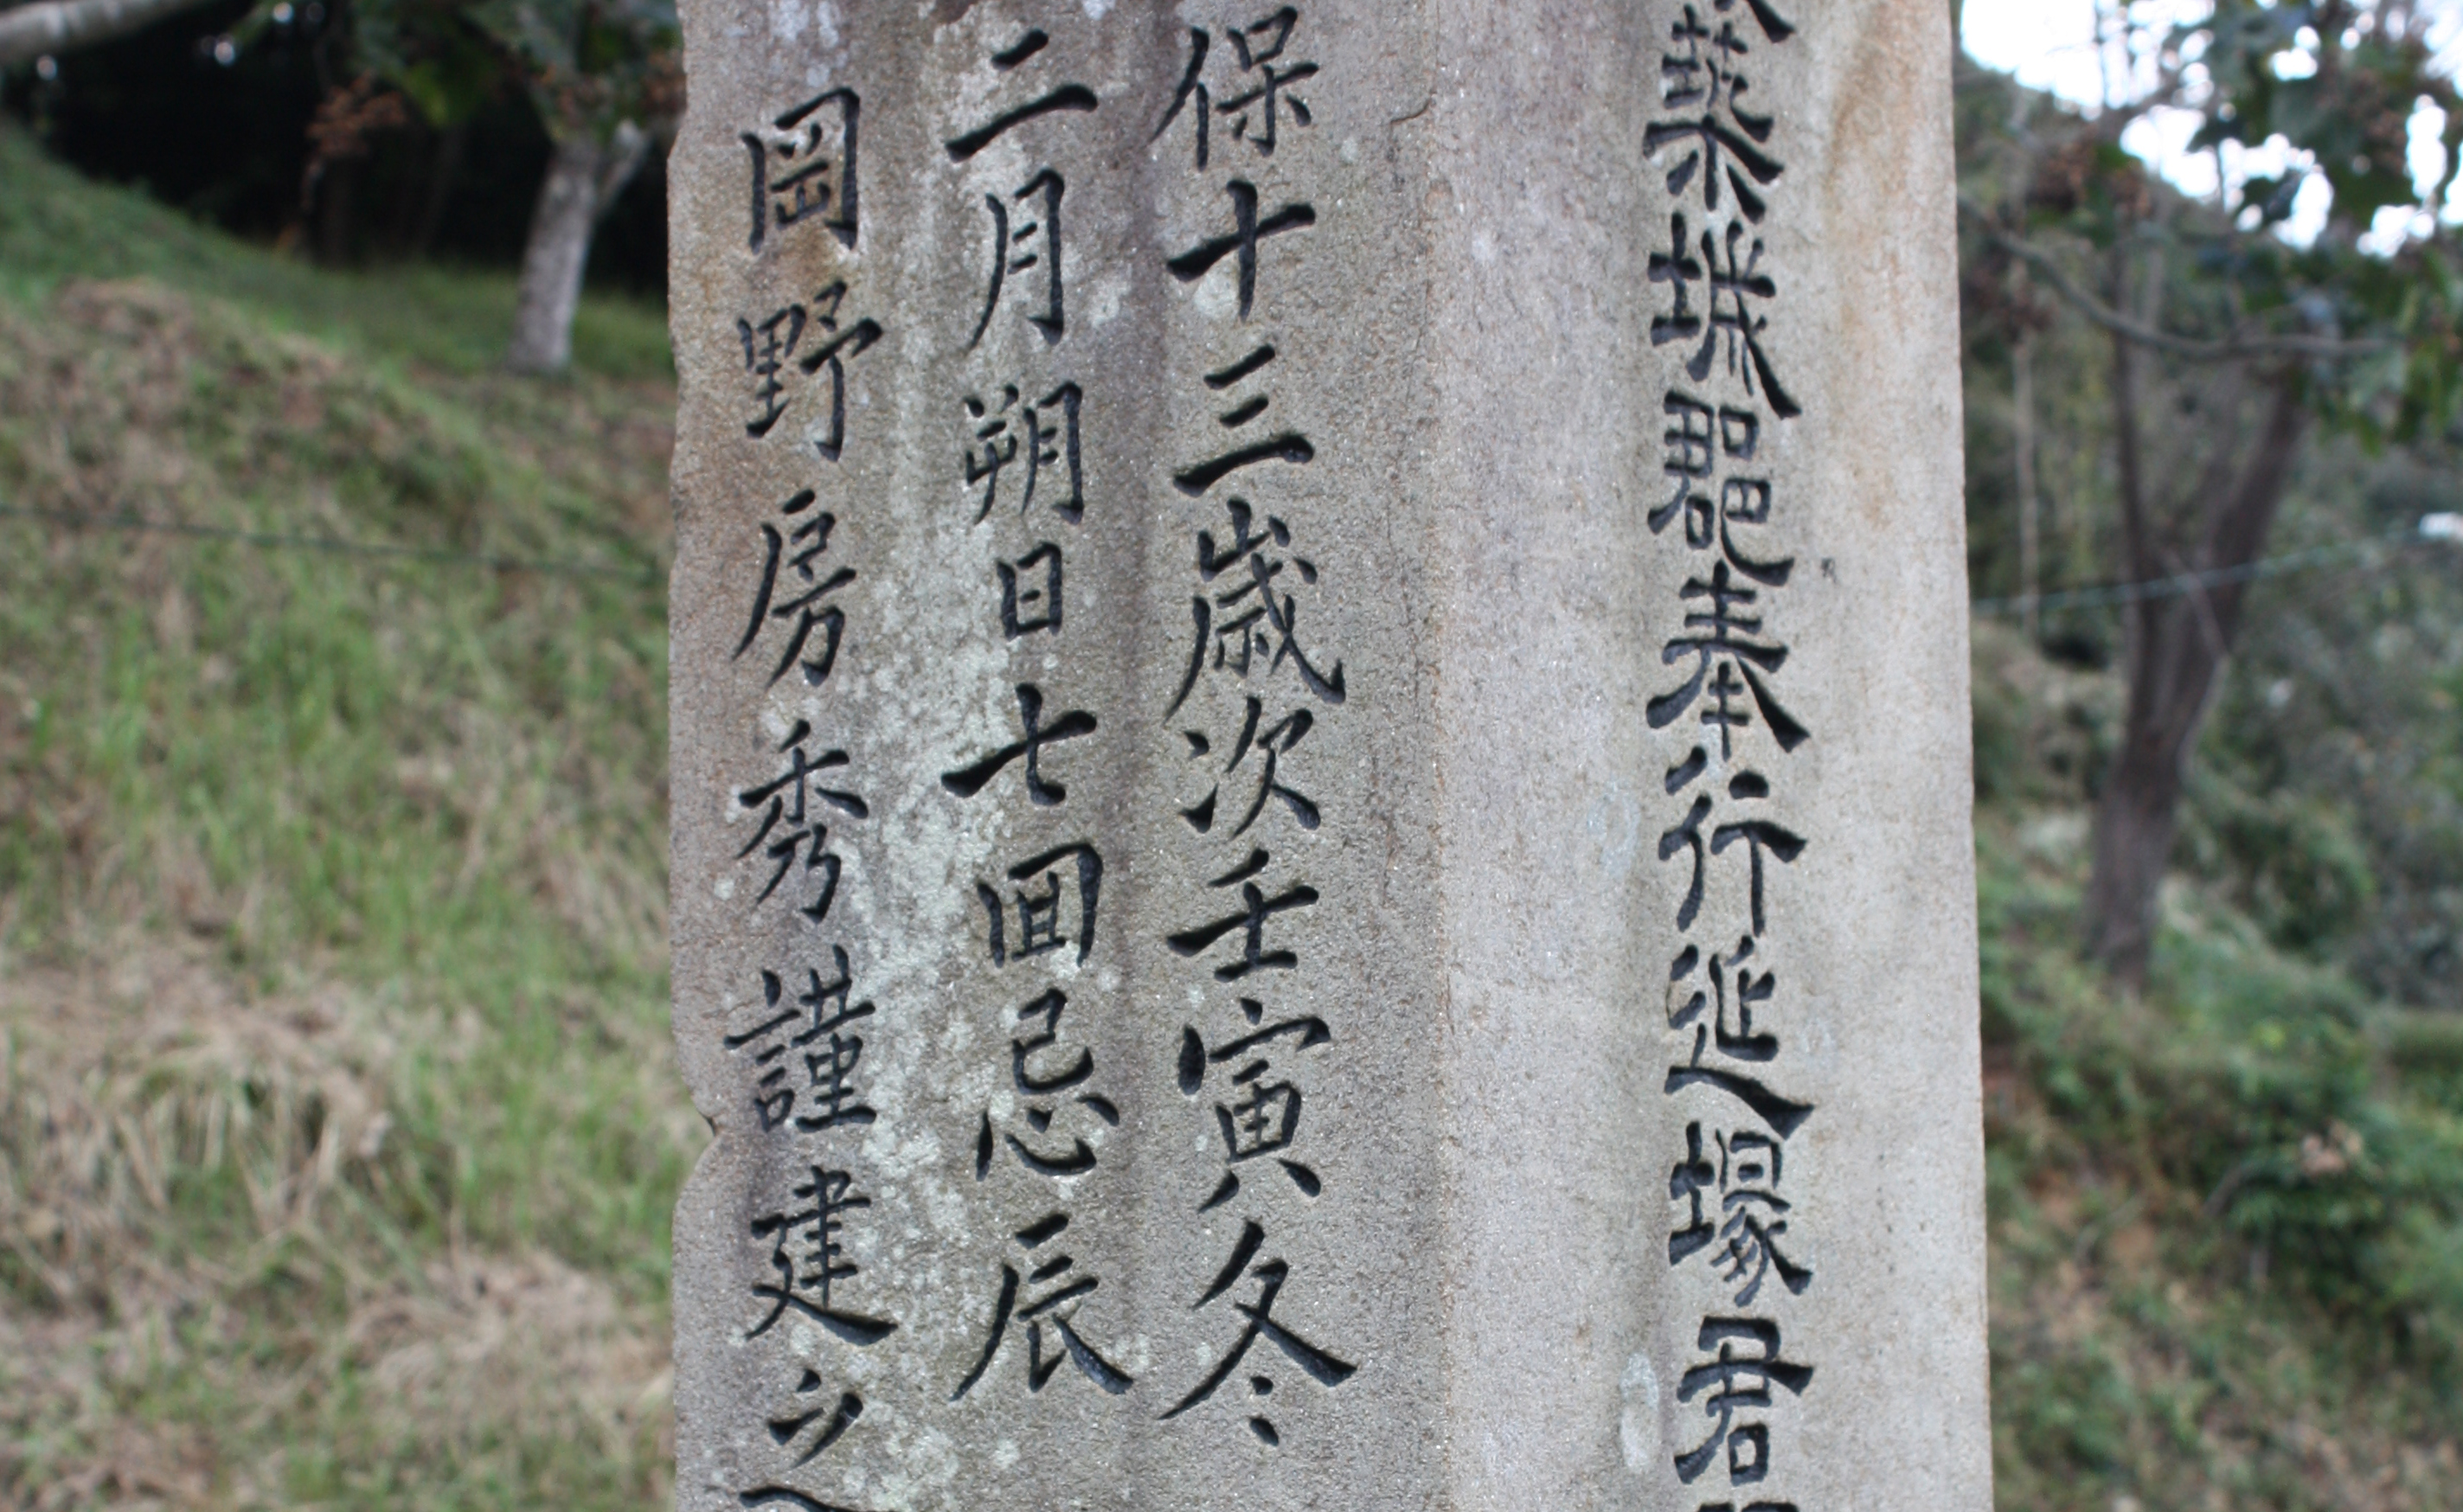 築城郡奉行延塚君
保十三歳次壬寅冬
二月朔日七回忌辰
岡野房秀謹建之